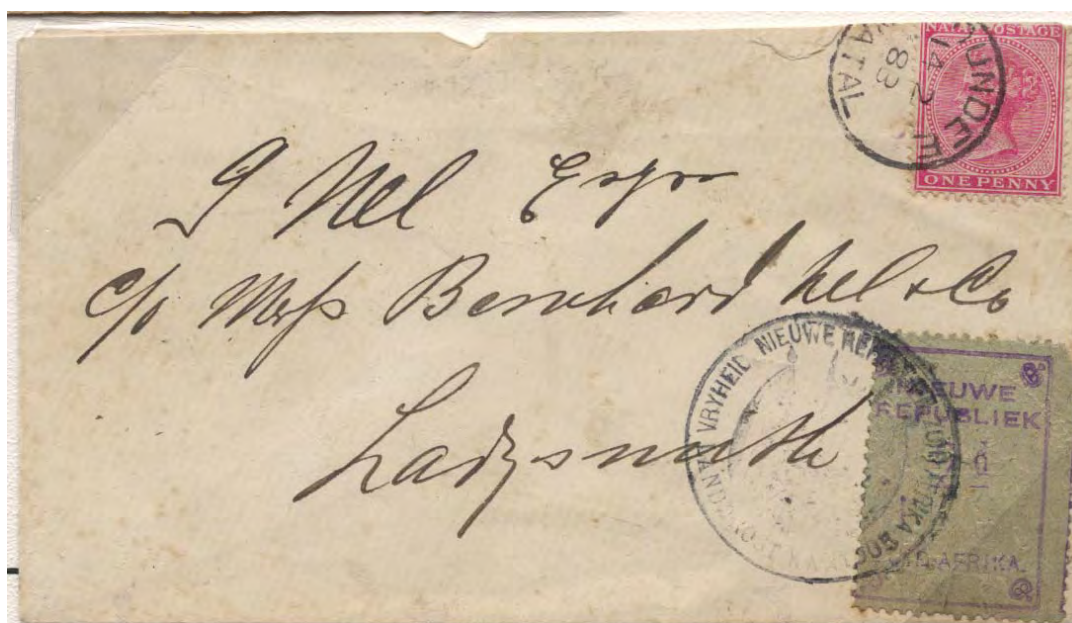 NATAL POSTAGE
ONE PENNY
DUNDEE
14 2
83
NATAL
G Nel Esqre
c/o Messs Bernhard Nel & Co
Ladysmith
VRYHEID NIEUWE ZUID AFRIKA
NIEUWE
REPUBLIEK
ZUID-AFRIKA.